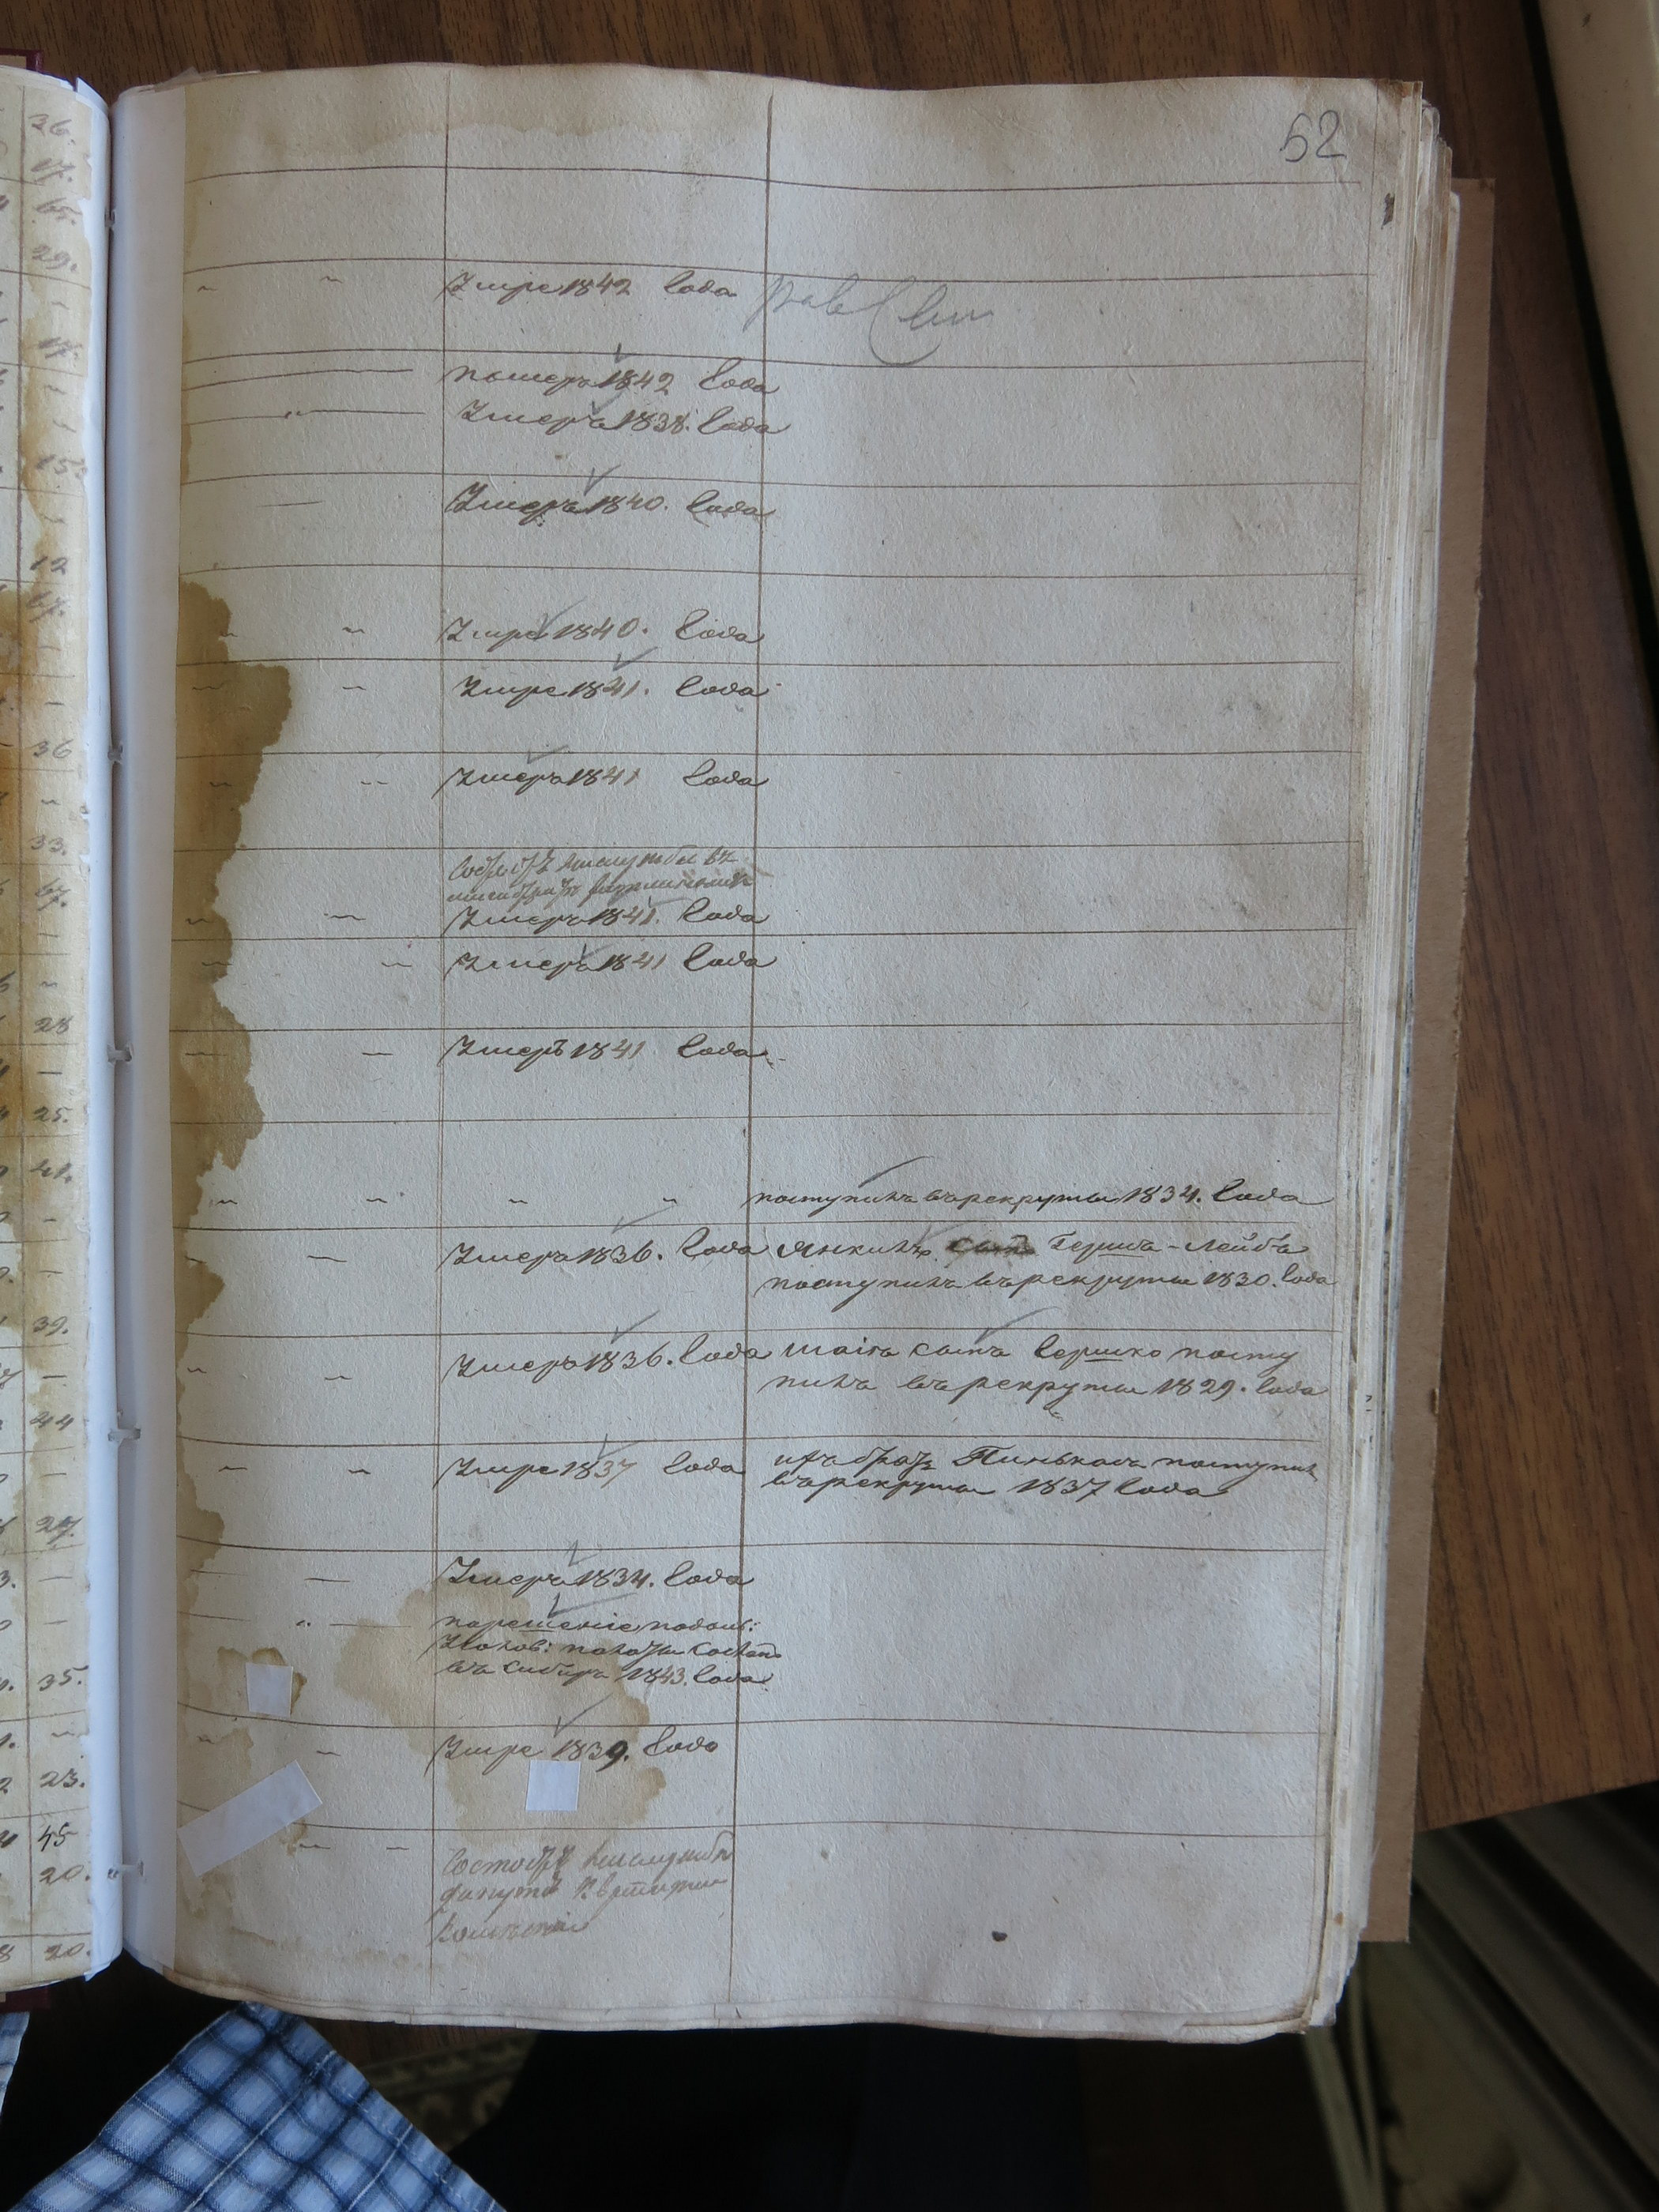 36.
17.
65.
29.
17.
15.
12
67.
36
33.
67.
28
25.
41.
39.
44
27.
35.
23.
45
20.
20.
62
Умре 1842 года
померъ 1842 года
Умеръ 1838. года
Умеръ 1840. года
Умре 1840. года
Умре 1841. года
Умеръ 1841 года
Умеръ 1841. года
Умеръ 1841 года
Умеръ 1841 года
поступилъ въ рекруты 1834. года
Умеръ 1836. года Янкиль Сынъ Герша-Лейба
поступилъ въ рекруты 1830. года
Умеръ 1836. года Шаіа сынъ Гершко посту
пилъ въ рекруты 1829. года
Умре 1837 года ихъ братъ Пинькасъ поступил
въ рекруты 1837 года
Умеръ 1834. года
по решенію
въ Сибирь 1843. года
Умре 1839. года